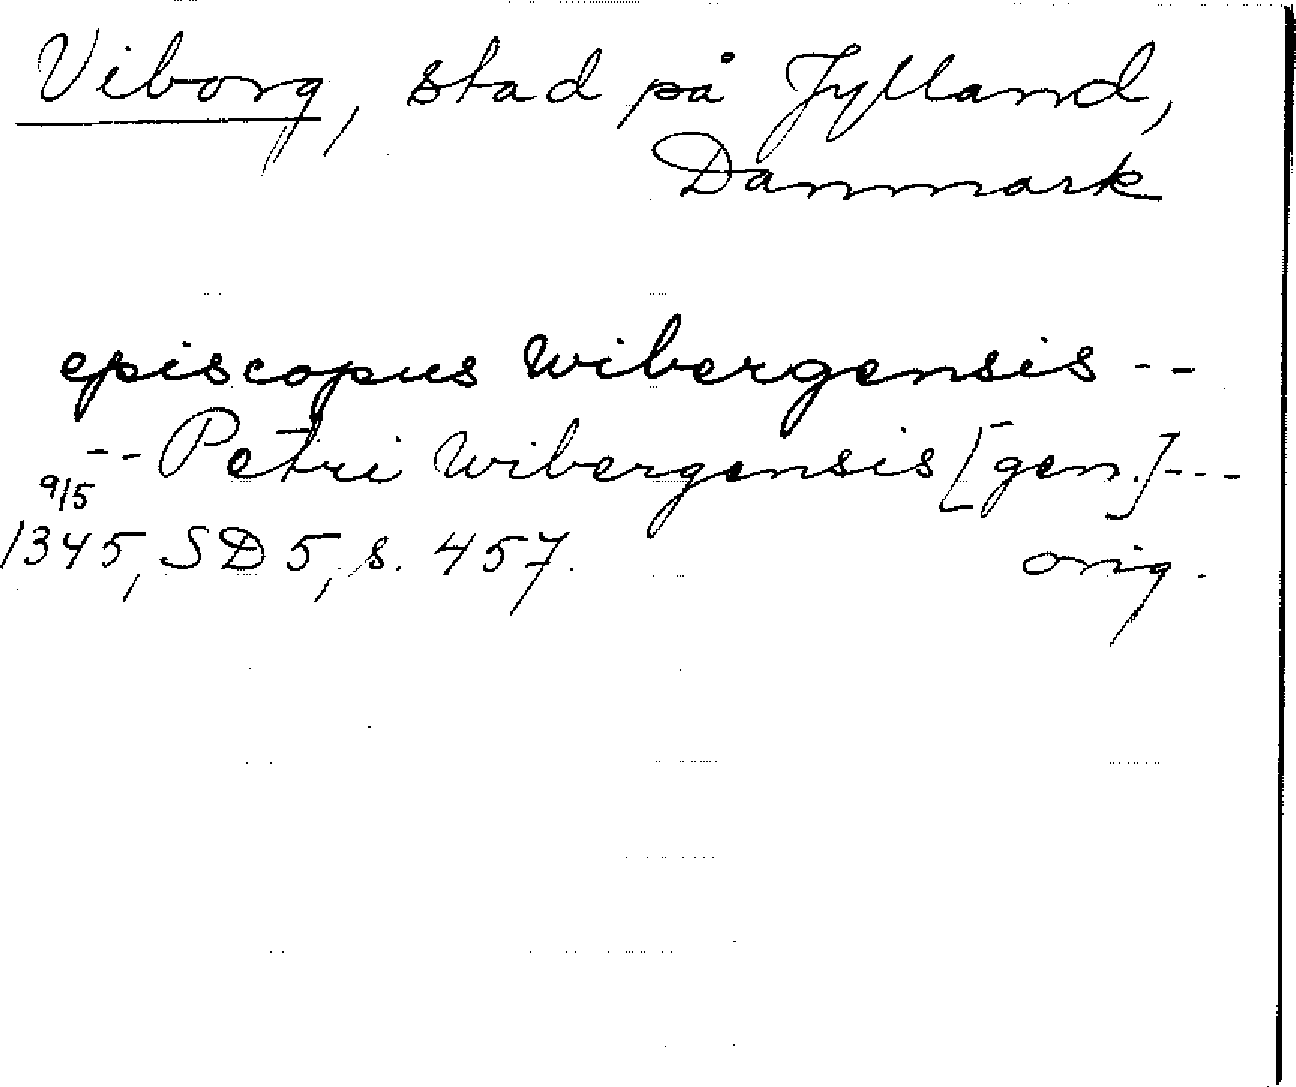 Viborg, stad på Jylland,
Danmark
episcopus wibergensis --
-- Petri wibergensis [gen.] ---
9/5
1345, SD 5, s. 457. orig.